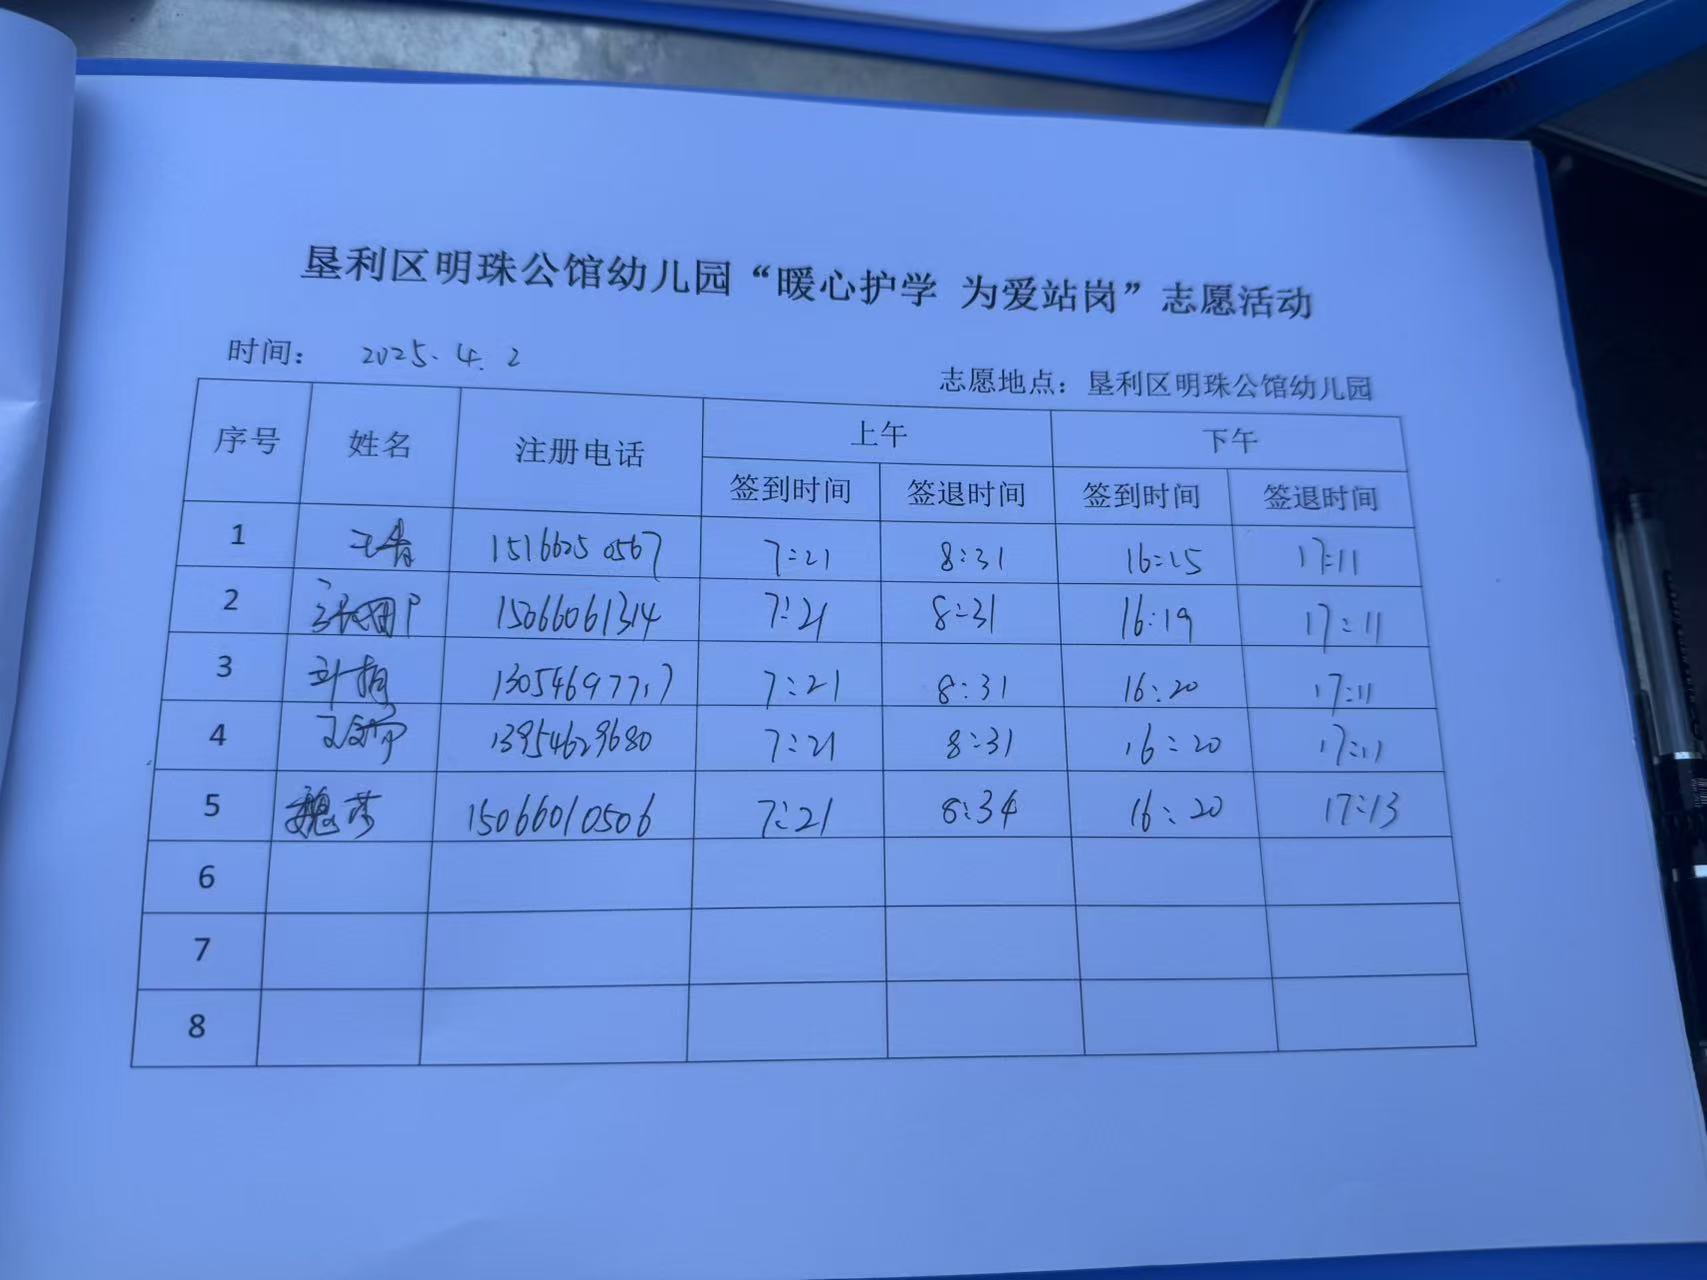 垦利区明珠公馆幼儿园“暖心护学 为爱站岗”志愿活动
时间： 2025.4.2
志愿地点：垦利区明珠公馆幼儿园
序号 姓名 注册电话 上午 下午
签到时间 签退时间 签到时间 签退时间
1 王青 15166250567 7:21 8:31 16:15 17:11
2 15066061314 7:21 8:31 16:19 17:11
3 13054697717 7:21 8:31 16:20 17:11
4 13954629680 7:21 8:31 16:20 17:11
5 魏莎 15066010506 7:21 8:34 16:20 17:13
6
7
8